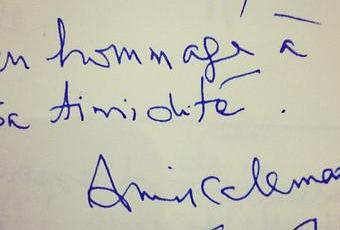 en hommage à
sa timidité.
Amicalema